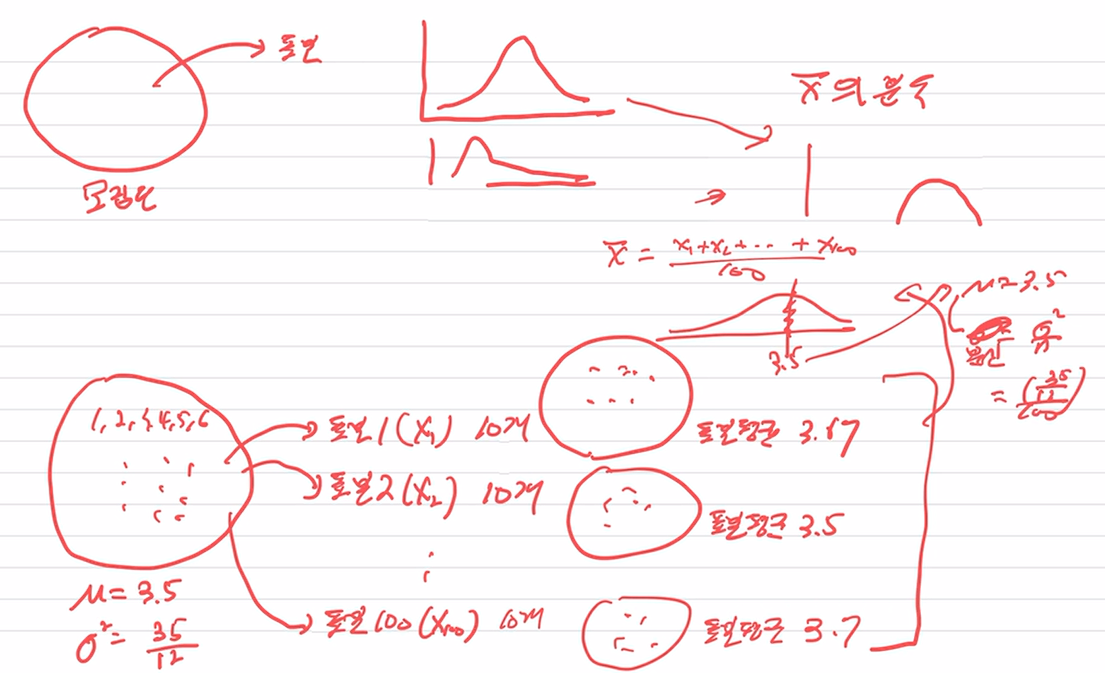 표본
모집단
x̄의 분수
x̄ = (x₁+x₂+ ·· + x₁₀₀) / 100
3.5
μ=3.5
분산 σ²/n
= (35/12)/100
1, 2, 3, 4, 5, 6
μ= 3.5
σ²= 35/12
표본1(X₁) 10개
표본평균 3.17
표본2(X₂) 10개
표본평균 3.5
⋮
표본100(X₁₀₀) 10개
표본평균 3.7